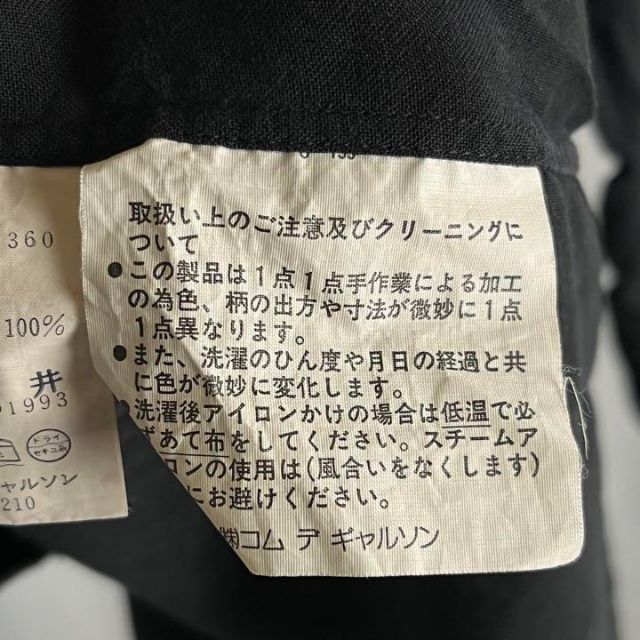 360
100%
井
1993
ドライ
セキユ系
ャルソン
210
取扱い上のご注意及びクリーニングに
ついて
●この製品は1点1点手作業による加工
の為色、柄の出方や寸法が微妙に1点
1点異なります。
●また、洗濯のひん度や月日の経過と共
に色が微妙に変化します。
●洗濯後アイロンかけの場合は低温で必
ずあて布をしてください。スチームア
イロンの使用は(風合いをなくします)
にお避けください。
㈱コム デ ギャルソン